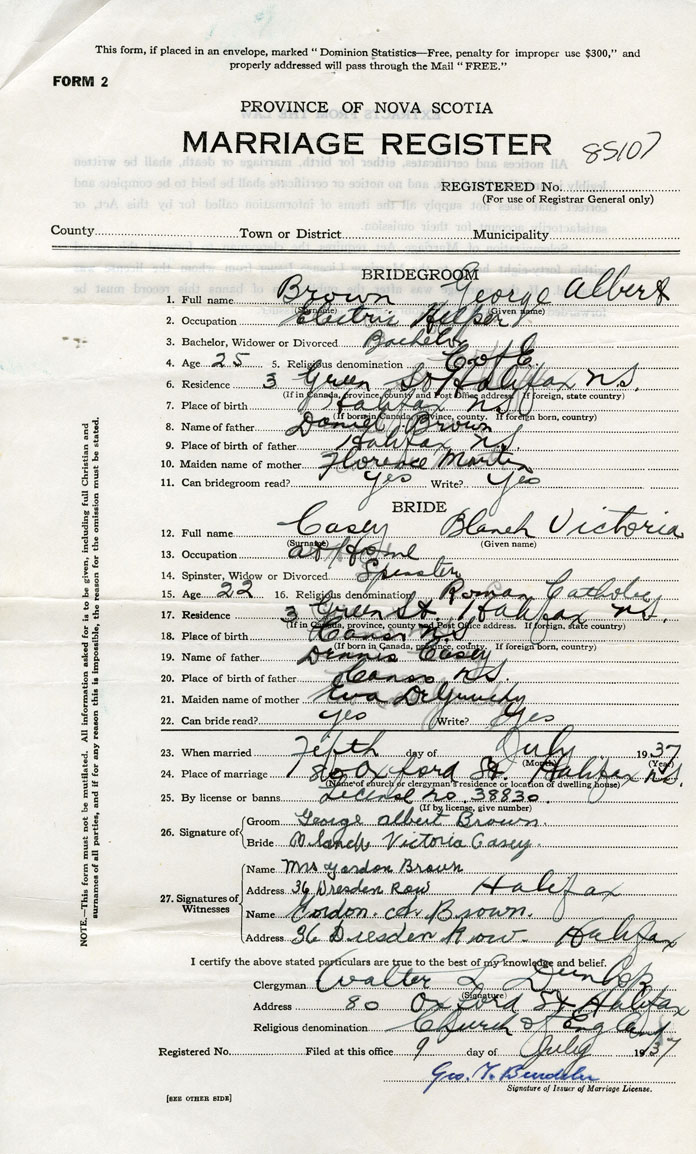 This form, if placed in an envelope, marked "Dominion Statistics—Free, penalty for improper use $300," and
properly addressed will pass through the Mail "FREE."
FORM 2
PROVINCE OF NOVA SCOTIA
MARRIAGE REGISTER 85107
REGISTERED No.
(For use of Registrar General only)
County Town or District Municipality
BRIDEGROOM
1. Full name Brown George Albert
(Surname) (Given name)
2. Occupation Electric Helper
3. Bachelor, Widower or Divorced Bachelor
4. Age 25 5. Religious denomination C of E
6. Residence 3 Green St Halifax N.S.
(If in Canada, province, county and Post Office address. If foreign, state country)
7. Place of birth Halifax N.S.
(If born in Canada, province, county. If foreign born, country)
8. Name of father Daniel Brown
9. Place of birth of father Halifax N.S.
10. Maiden name of mother Florence Martin
11. Can bridegroom read? Yes Write? Yes
BRIDE
12. Full name Casey Blanch Victoria
(Surname) (Given name)
13. Occupation at Home
14. Spinster, Widow or Divorced Spinster
15. Age 22 16. Religious denomination Roman Catholic
17. Residence 3 Green St, Halifax N.S.
(If in Canada, province, county and Post Office address. If foreign, state country)
18. Place of birth Canso N.S.
(If born in Canada, province, county. If foreign born, country)
19. Name of father Dennis Casey
20. Place of birth of father Canso N.S.
21. Maiden name of mother Eva
22. Can bride read? Yes Write? Yes
23. When married Fifth day of July 1937
(Month) (Year)
24. Place of marriage 80 Oxford St. Halifax N.S.
(Name of church or clergyman's residence or location of dwelling house)
25. By license or banns License no. 38830
(If by license, give number)
26. Signature of Groom George albert Brown.
Bride Blanch Victoria Casey.
27. Signatures of Witnesses Name Mrs Gordon Brown
Address 36 Dresden Row Halifax
Name Gordon Brown.
Address 36 Dresden Row. Halifax
I certify the above stated particulars are true to the best of my knowledge and belief.
Clergyman Walter L Dunlop
(Signature)
Address 80 Oxford St Halifax
Religious denomination Church of England
Registered No. Filed at this office 9 day of July 1937
Geo.
Signature of Issuer of Marriage License.
[SEE OTHER SIDE]
NOTE.—This form must not be mutilated. All information asked for is to be given, including full Christian and
surnames of all parties, and if for any reason this is impossible, the reason for the omission must be stated.